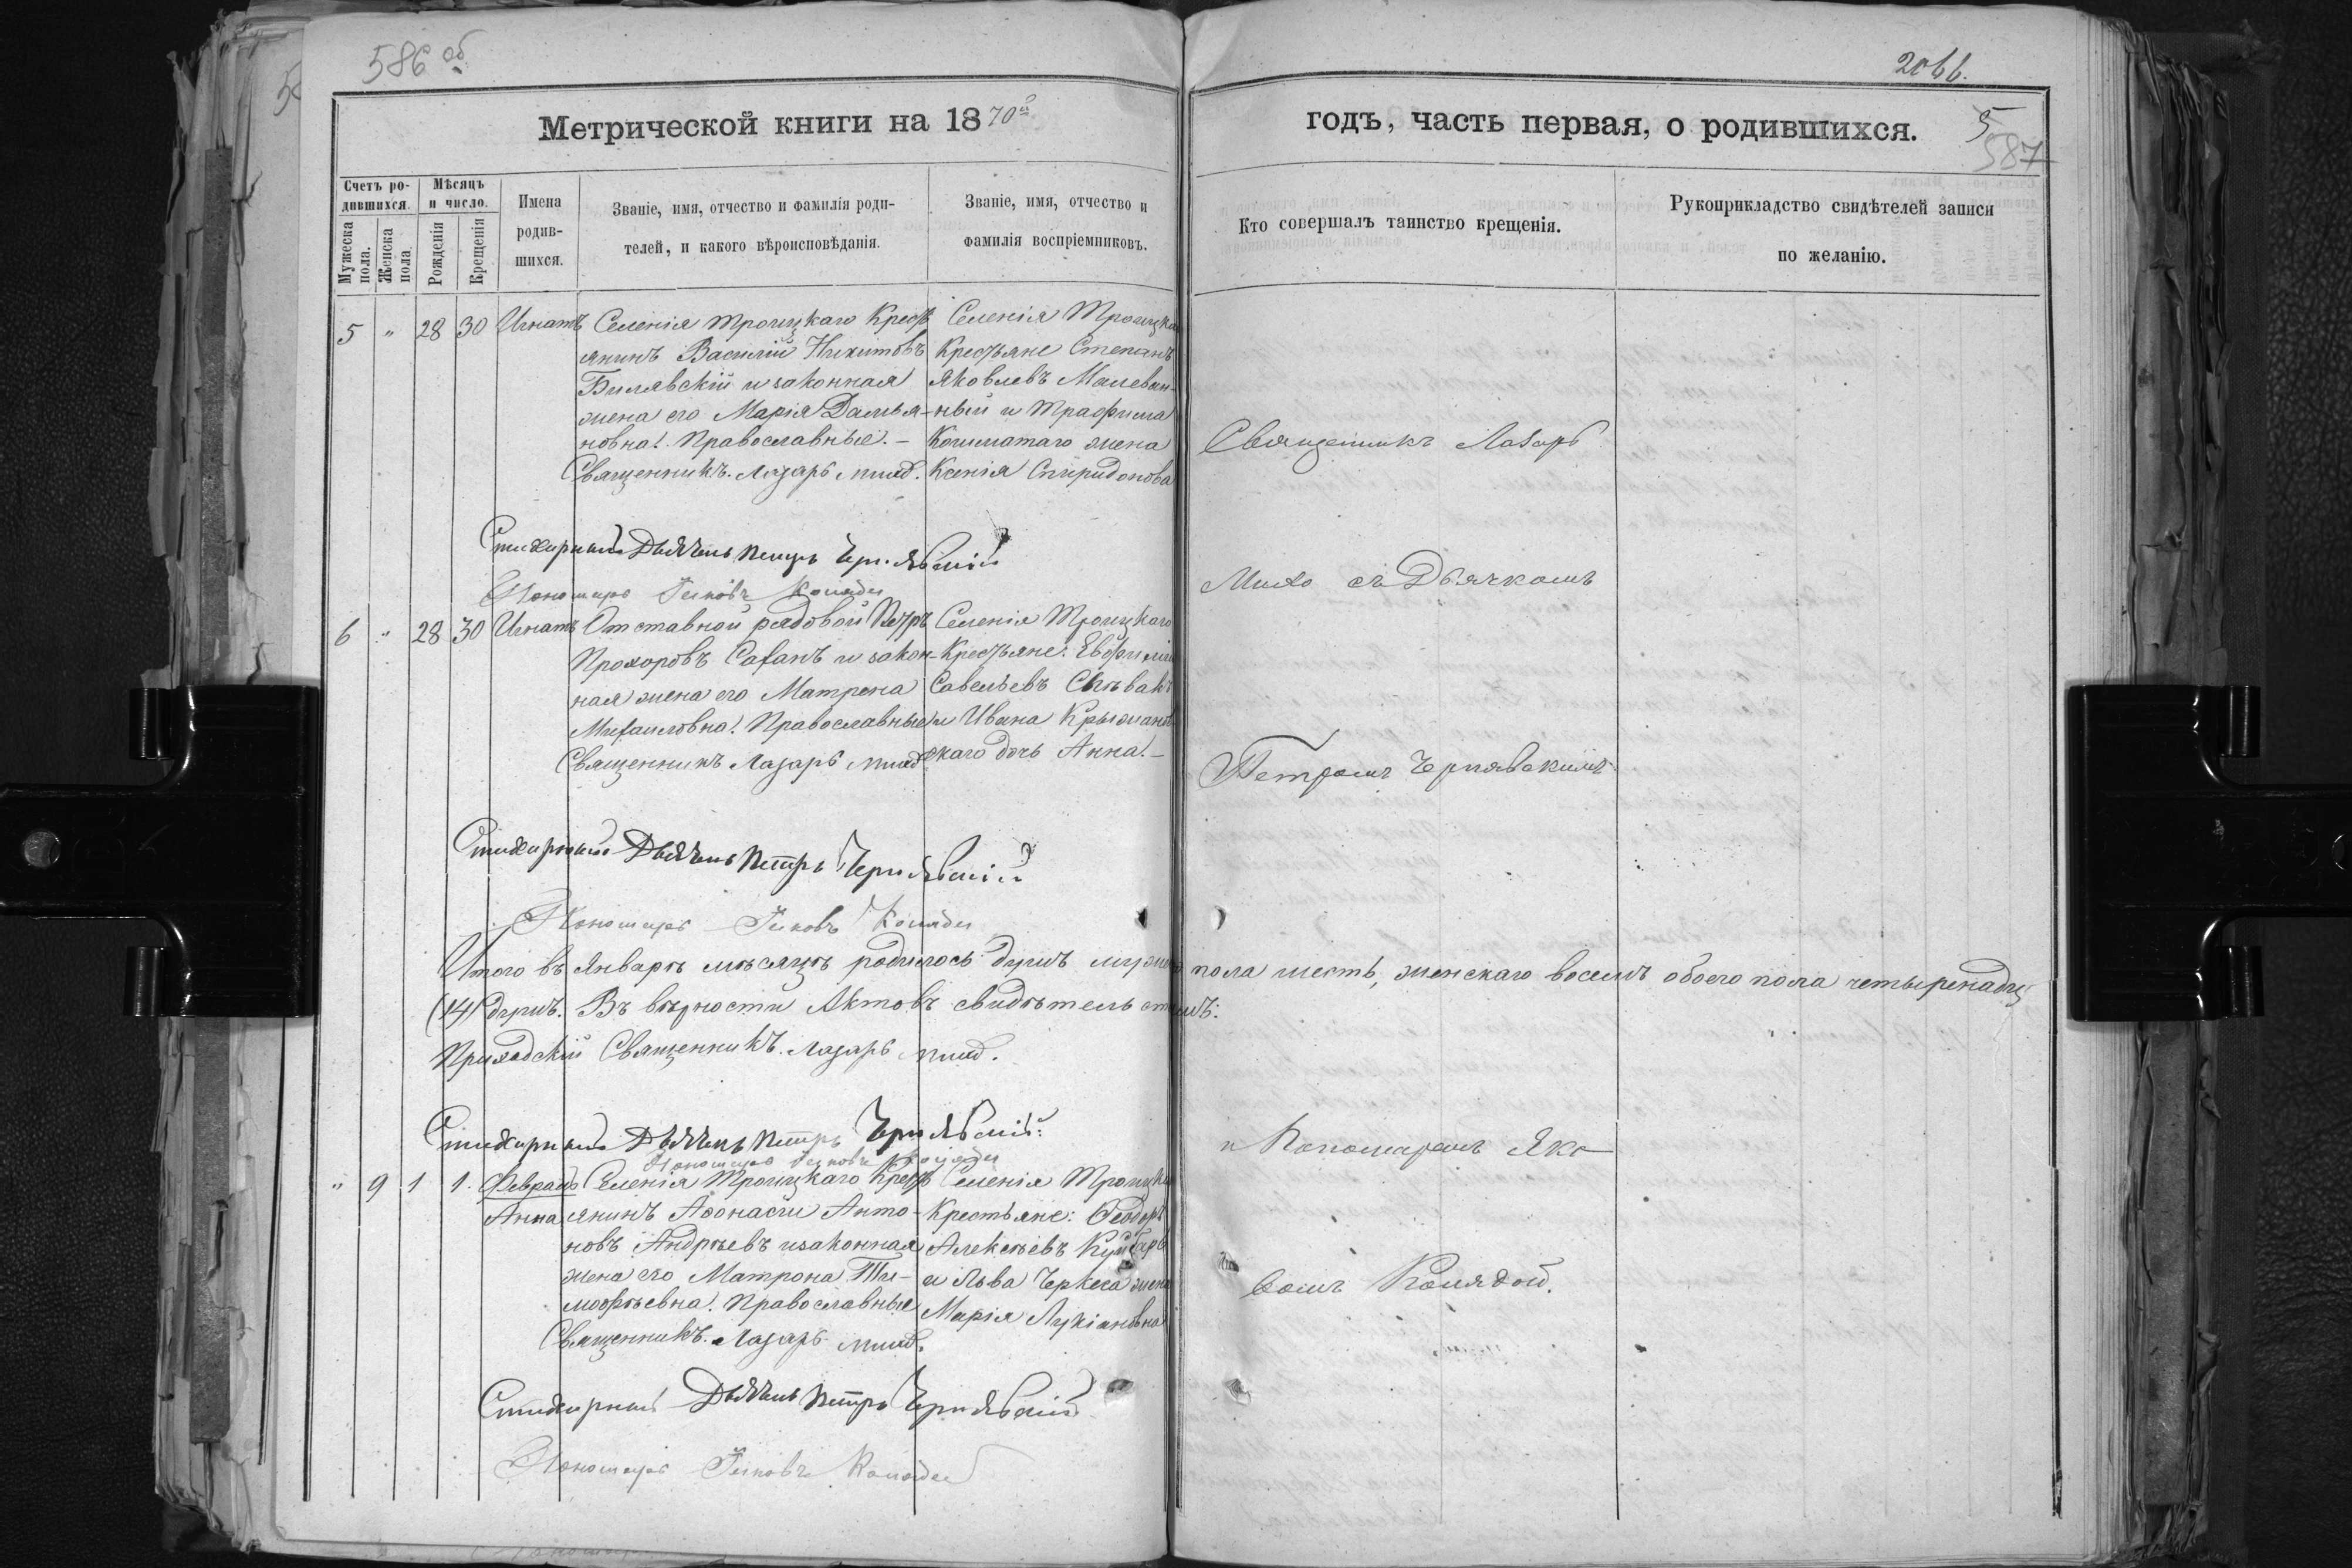 586 об
2066.
Метрической книги на 1870й
годъ, часть первая, о родившихся.
5
587
Счетъ родившихся.
Мужеска пола.
Женска пола
Мѣсяцъ и число.
Рожденія
Крещенія
Имена родившихся.
Званіе, имя, отчество и фамилія родителей, и какого вѣроисповѣданія.
Званіе, имя, отчество и фамилія воспріемниковъ.
Кто совершалъ таинство крещенія.
Рукоприкладство свидѣтелей записи
по желанію.
5 " 28 30 Игнатъ
Селенія Троицкаго Кресть
янинъ Василій Никитовъ
Билявскій и законная
жена его Марія Дамья-
новна. Православные. –
Священникъ Лазарь
Селенія Троицка
Крестьяне Степанъ
Яковлевъ Малеван-
ный и Трафима
жена
Ксенія Спиридонова
Стихирный Дьячекъ Петръ Чернявскій
Пономарь Іяковъ Коляда
6 " 28 30 Игнатъ
Отставной рядовой Петръ
Прохоровъ и закон-
ная жена его Матрена
Михаиловна. Православные
Священникъ Лазарь
Селенія Троицкаго
Крестьяне: Евфимій
Савельевъ
и Ивана Крыжанов
скаго дочь Анна. –
Стихирный Дьячекъ Петръ Чернявскій
Пономарь Іяковъ Коляда
Итого въ Январѣ мѣсяцѣ родилось душъ мужеск пола шесть, женскаго восемъ обоего пола четыренадц
(14) душъ. Въ вѣрности Актовъ свидѣтельствуемъ:
Приходскій Священникъ Лазарь
Стихирный Дьячекъ Петръ Чернявскій:
Пономарь Іяковъ Коляда
" 9 1 1. Февраль
Анна
Селенія Троицкаго Кресть
янинъ Афонасій Анто-
новъ Андрѣевъ и законная
жена его Матрона Ти-
мофѣевна. Православные
Священникъ Лазарь
Селенія Троицка
Крестьяне: Феодоръ
Алексѣевъ
и Льва Черкеса жена
Марія Лукіановна
Стихирный Дьячекъ Петръ Чернявскій
Пономарь Іяковъ Коляда
Священникъ Лазарь
съ Дьячкомъ
Петромъ Чернявскимъ
и Пономаремъ Яко
вомъ Колядой.